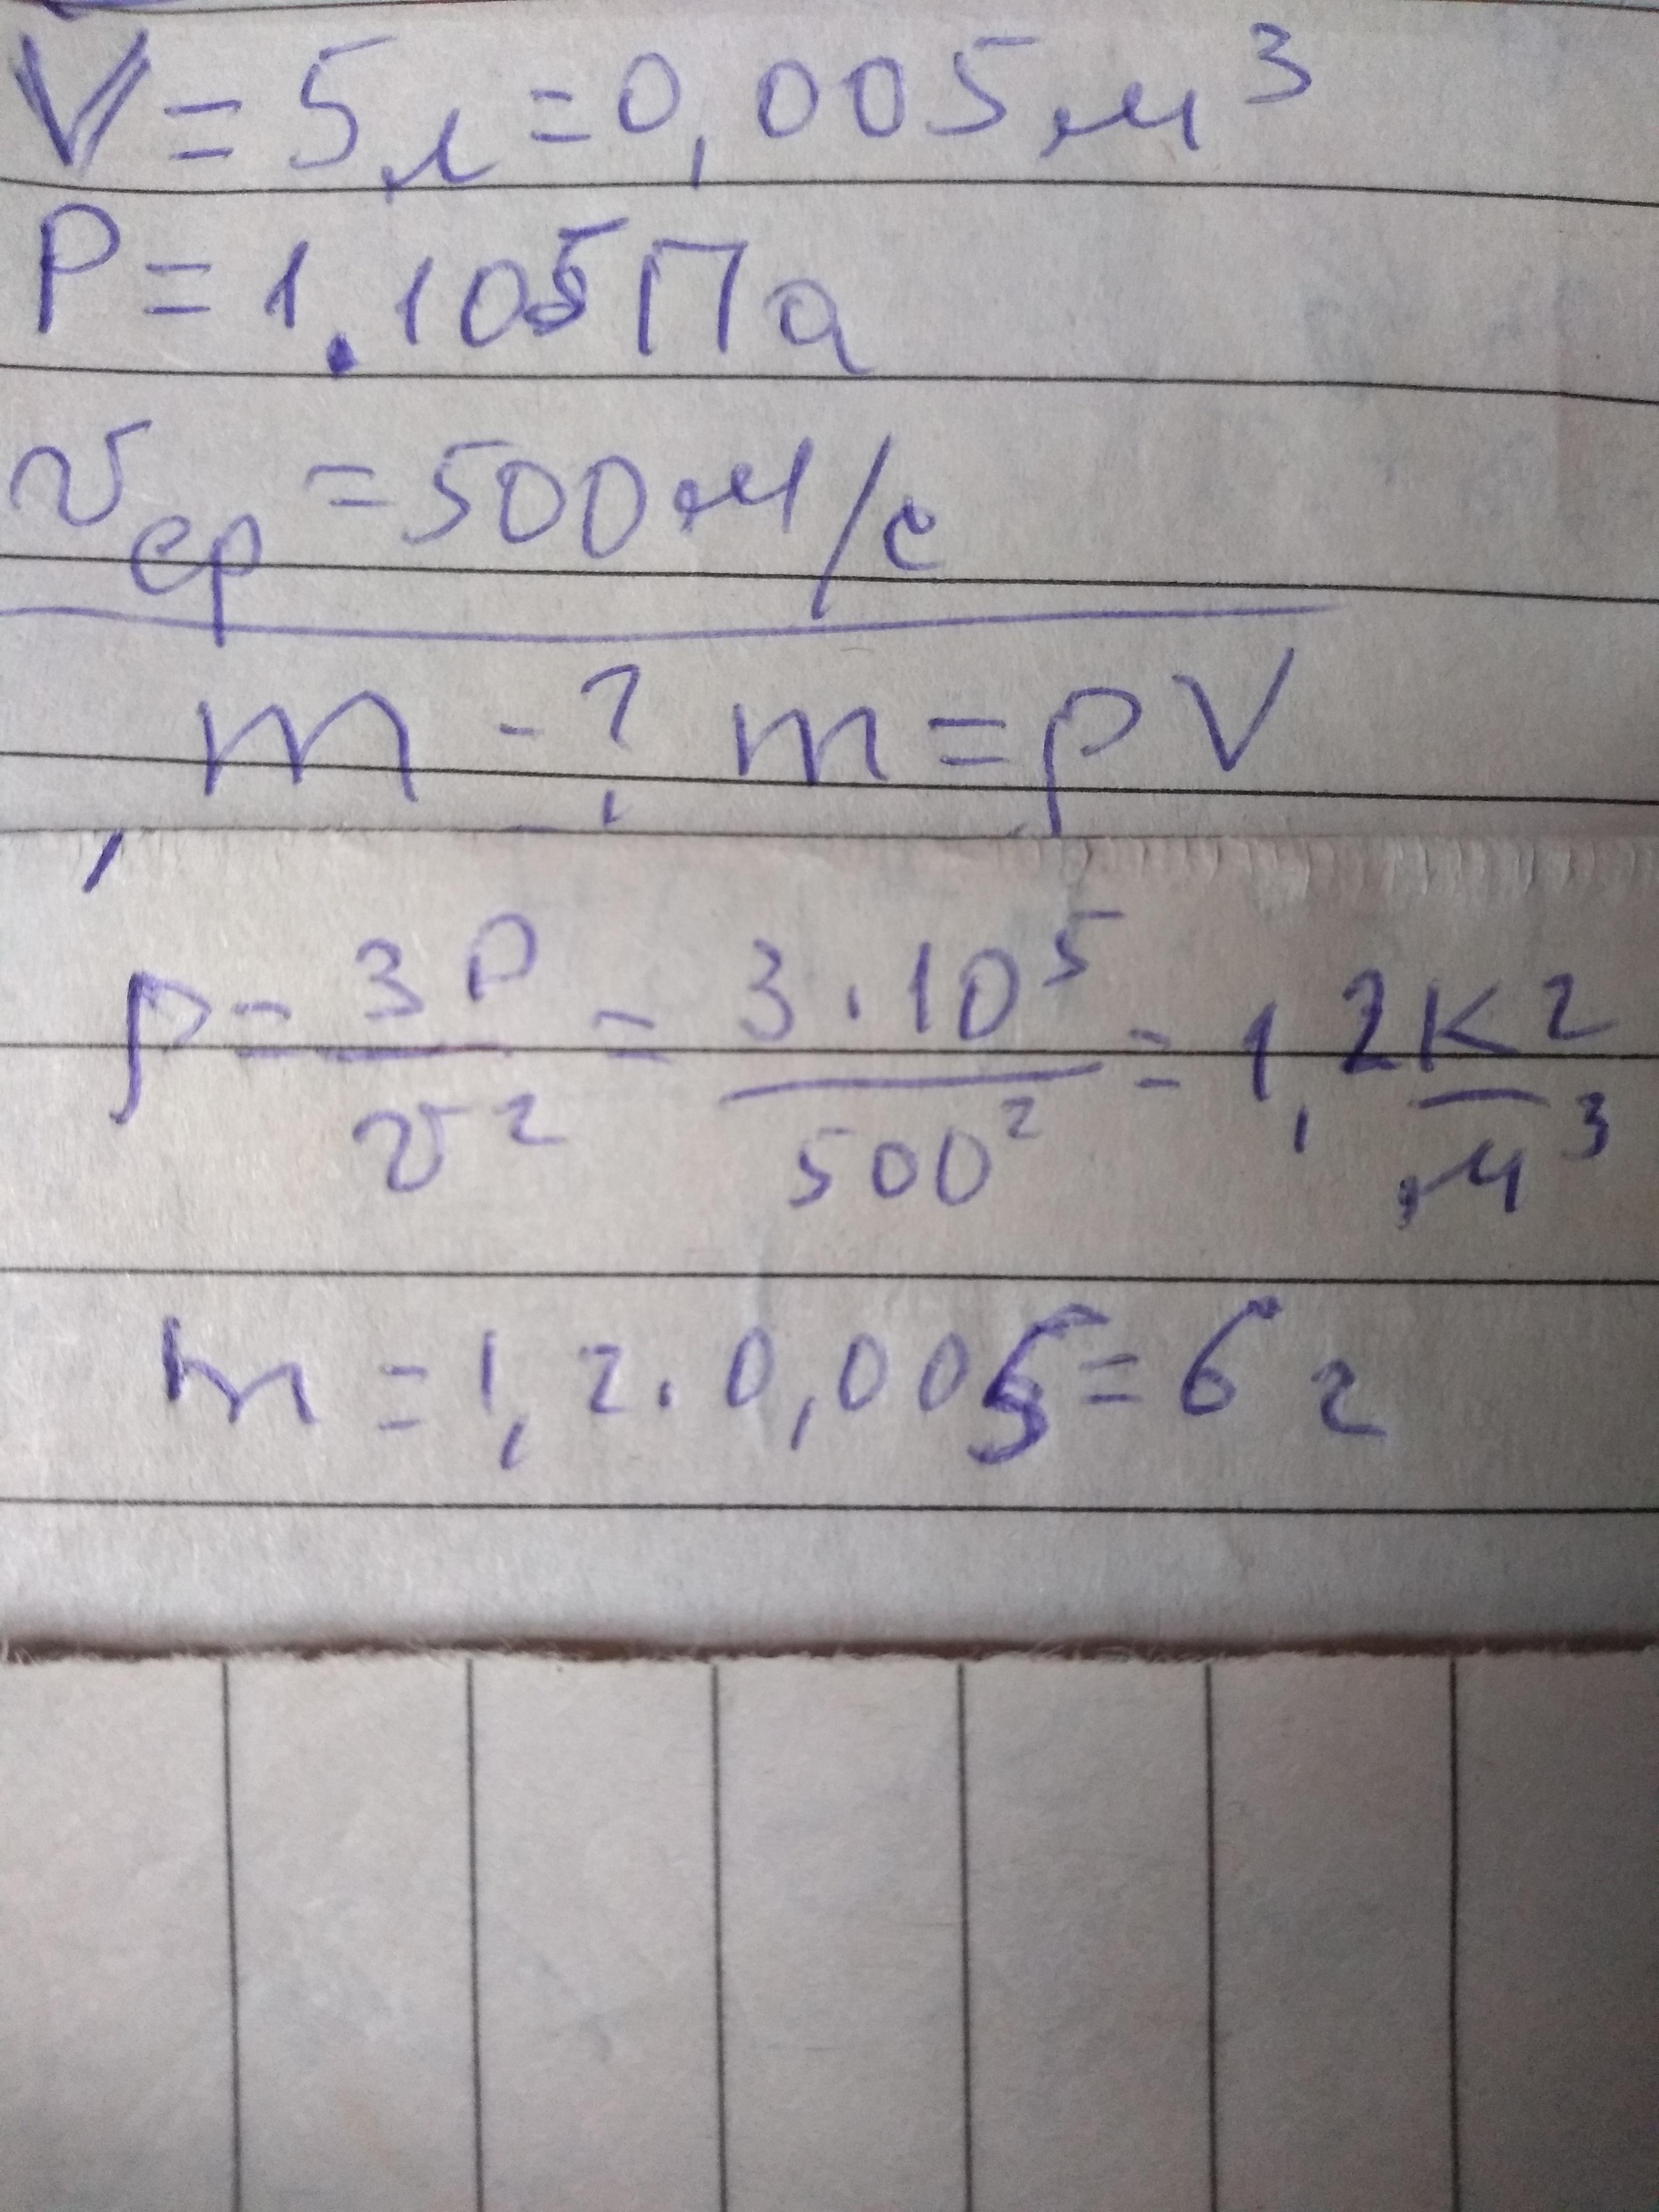 V = 5л = 0,005м³
P = 1.10⁵Па
υср = 500м/с
m - ? m = ρV
ρ = 3P/υ² = 3·10⁵/500² = 1,2кг/м³
m = 1,2·0,005 = 6г